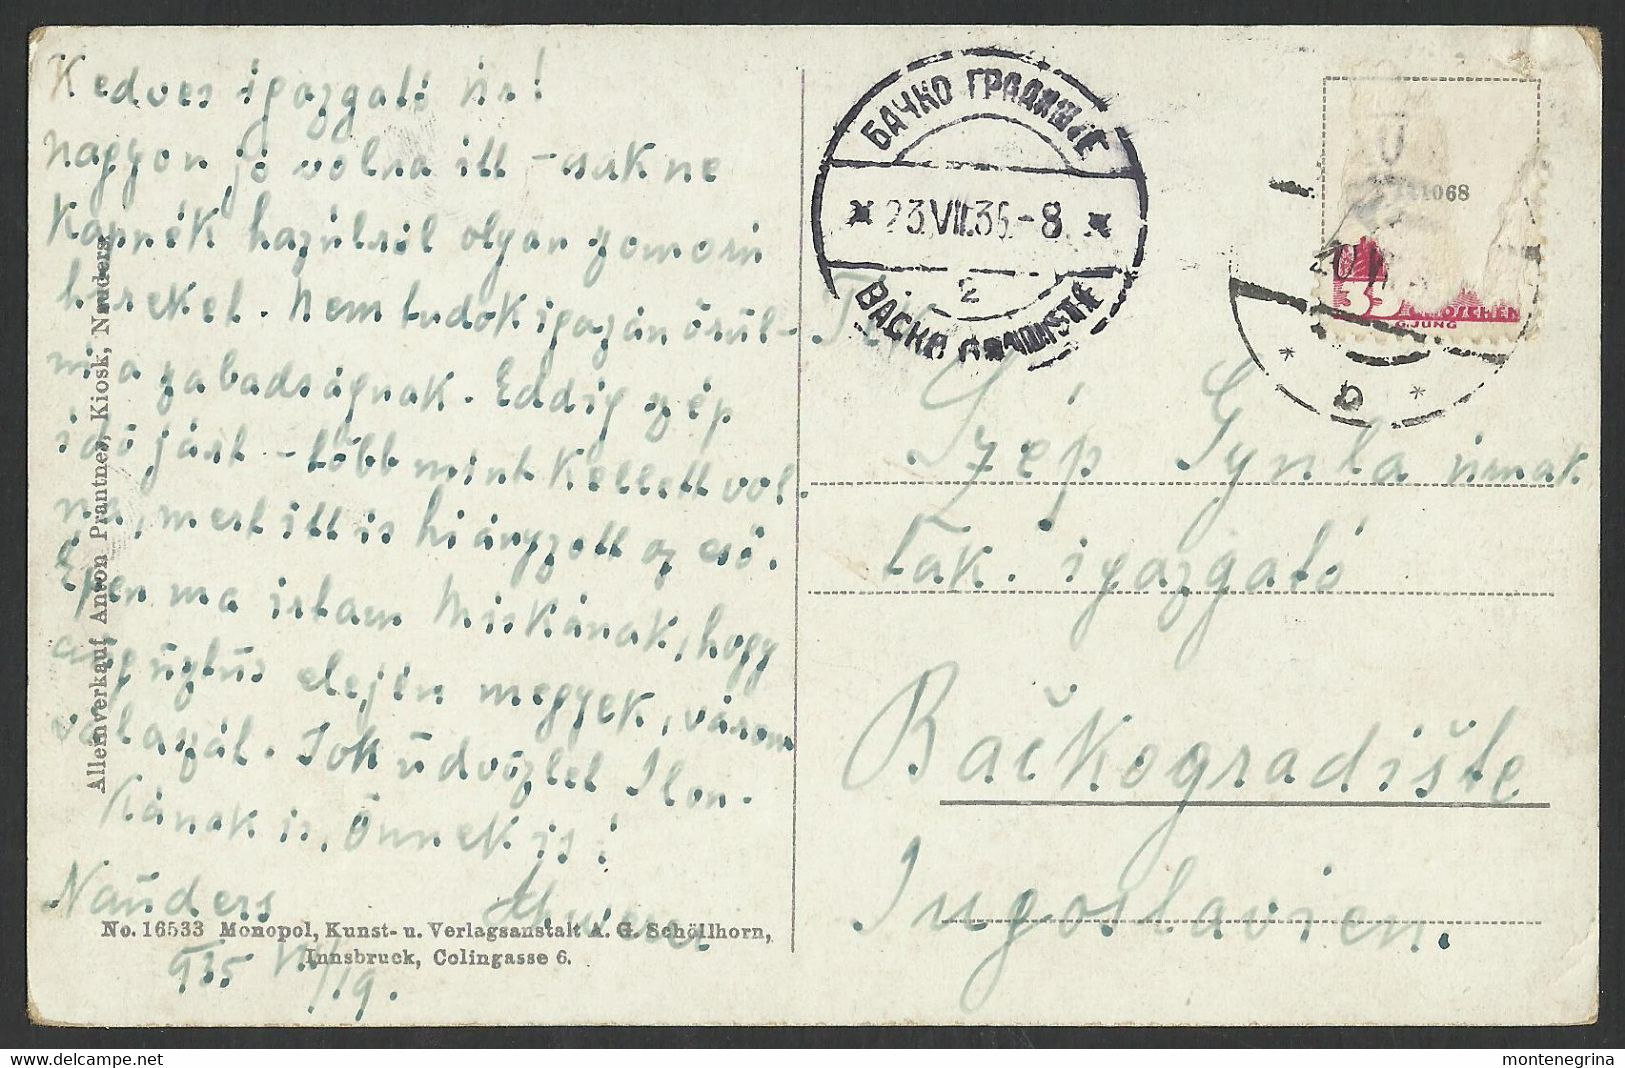 Kedves igazgató úr!
nagyon jó volna itt – csak ne
kapnék hazúlról olyan szomorú
hireket. Nem tudok igazán örül-
ni a szabadságnak. Eddig szép
idő járt – több mint kellett vol-
na, mert itt is hiányzott az eső.
Épen ma irtam Miskának, hogy
augusztus elején megyek, várom
válaszát. Sok üdvözlet Ilon-
kának is, Önnek is!
Nauders
935 VII/19.
Allelnverkauf Anton Prantner, Kiosk, Nauders.
No. 16533 Monopol, Kunst- u. Verlagsanstalt A. G. Schöllhorn,
Innsbruck, Colingasse 6.
БАЧКО ГРАДИШТЕ
23.VII.35-8
2
BAČKO GRADIŠTE
1068
35 GROSCHEN
G.JUNG
b
Tek.
Szép Gyula úrnak
tak. igazgató
Bačkogradište
Jugoslavien.
montenegrina